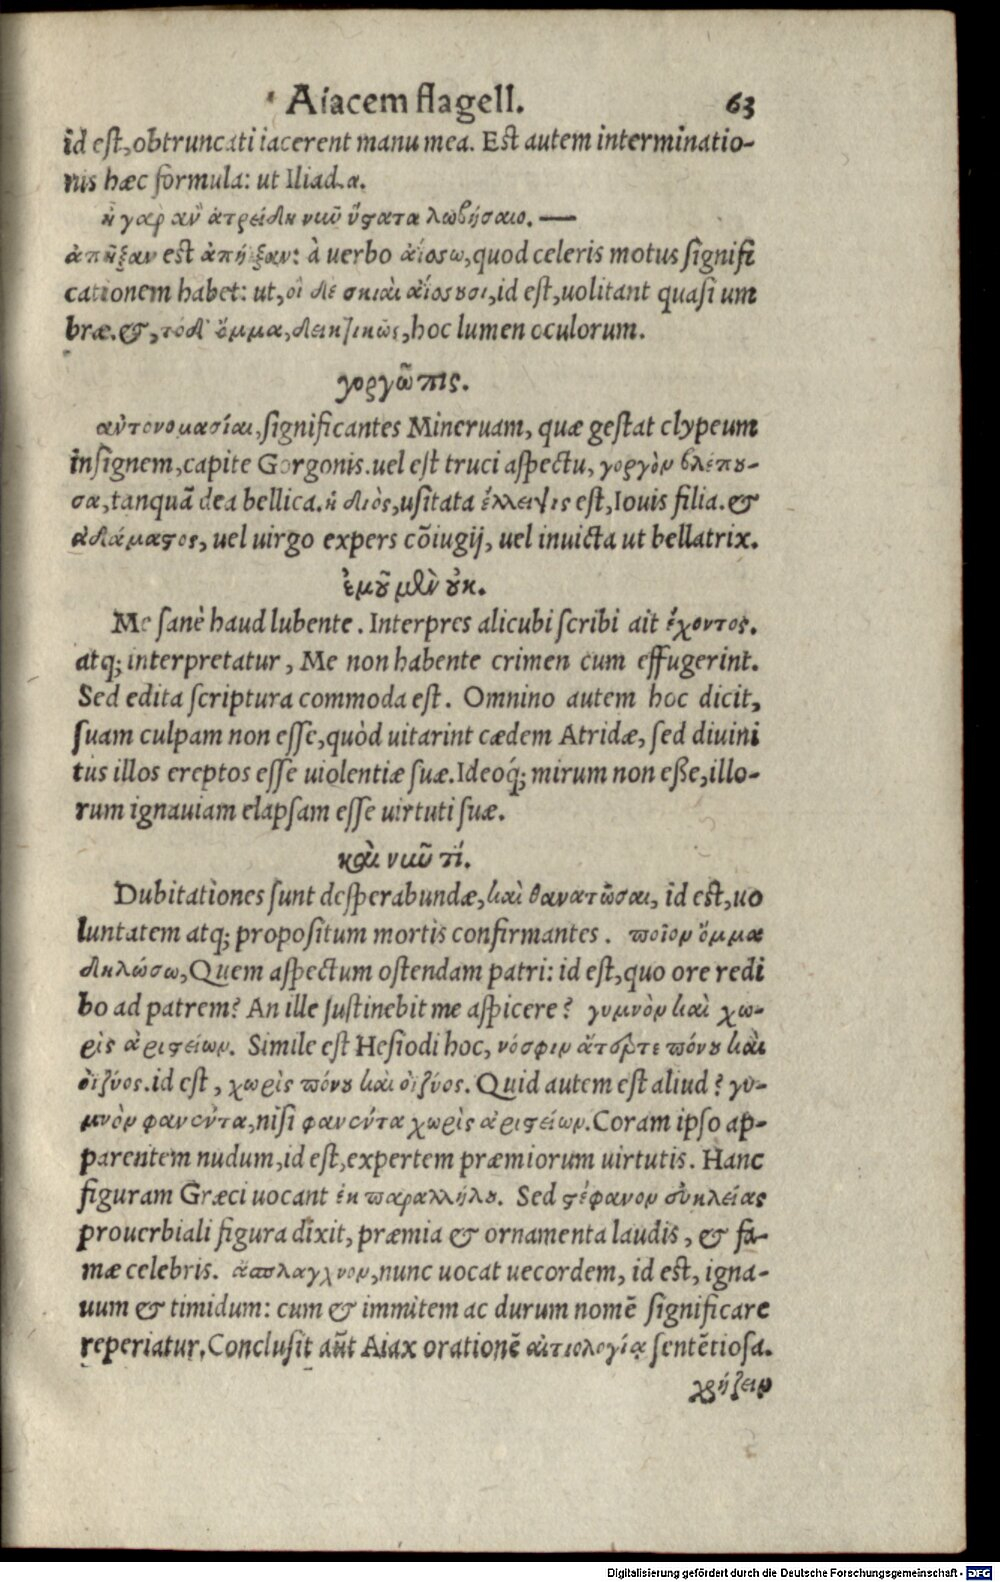 Aiacem flagell. 63
id est, obtruncati iacerent manu mea. Est autem interminatio-
nis hæc formula: ut Iliad. α.
ἢ γαρ ἂν ἀτρείδη νιῦ ὕϛατα λωβήσαιο. —
ἀπῇξαν est ἀπήϊξαν: à uerbo ἀΐοσω, quod celeris motus signifi
cationem habet: ut, οἱ δὲ σκιαὶ ἀΐοσουσι, id est, uolitant quasi um
bræ. &, τόδ' ὄμμα, δεικτικῶς, hoc lumen oculorum.
γοργῶπις.
αὐτονομασίαι, significantes Mineruam, quæ gestat clypeum
insignem, capite Gorgonis. uel est truci aspectu, γοργὸν βλέπου-
σα, tanquã dea bellica. ἡ διὸς, usitata ἔλλειψις est, Iouis filia. &
ἀδάμαϛος, uel uirgo expers cõiugij, uel inuicta ut bellatrix.
ἐμοῦ μὲν οὐκ.
Me sanè haud lubente. Interpres alicubi scribi ait ἔχοντος.
atq; interpretatur, Me non habente crimen cum effugerint.
Sed edita scriptura commoda est. Omnino autem hoc dicit,
suam culpam non esse, quòd uitarint cædem Atridæ, sed diuini
tus illos ereptos esse uiolentiæ suæ. Ideoq́; mirum non eße, illo-
rum ignauiam elapsam esse uirtuti suæ.
καὶ νιῦ τί.
Dubitationes sunt desperabundæ, καὶ θανατῶσαι, id est, uo
luntatem atq; propositum mortis confirmantes. ποῖον ὄμμα
δηλώσω, Quem aspectum ostendam patri: id est, quo ore redi
bo ad patrem? An ille sustinebit me aspicere? γυμνὸν καὶ χω-
ρὶς ἀριϛείων. Simile est Hesiodi hoc, νόσφιν ἄτερτε πόνου καὶ
ὀϊζύος. id est, χωρὶς πόνου καὶ ὀϊζύος. Quid autem est aliud? γυ-
μνὸν φανέντα, nisi φανέντα χωρὶς ἀριϛείων. Coram ipso ap-
parentem nudum, id est, expertem præmiorum uirtutis. Hanc
figuram Græci uocant ἐκ παραλλήλου. Sed ϛέφανον εὐκλείας
prouerbiali figura dixit, præmia & ornamenta laudis, & fa-
mæ celebris. ἄσπλαγχνον, nunc uocat uecordem, id est, igna-
uum & timidum: cum & immitem ac durum nomẽ significare
reperiatur. Conclusit aũt Aiax orationẽ αἰτιολογίᾳ sentẽtiosa.
χρήζειν
Digitalisierung gefördert durch die Deutsche Forschungsgemeinschaft - DFG